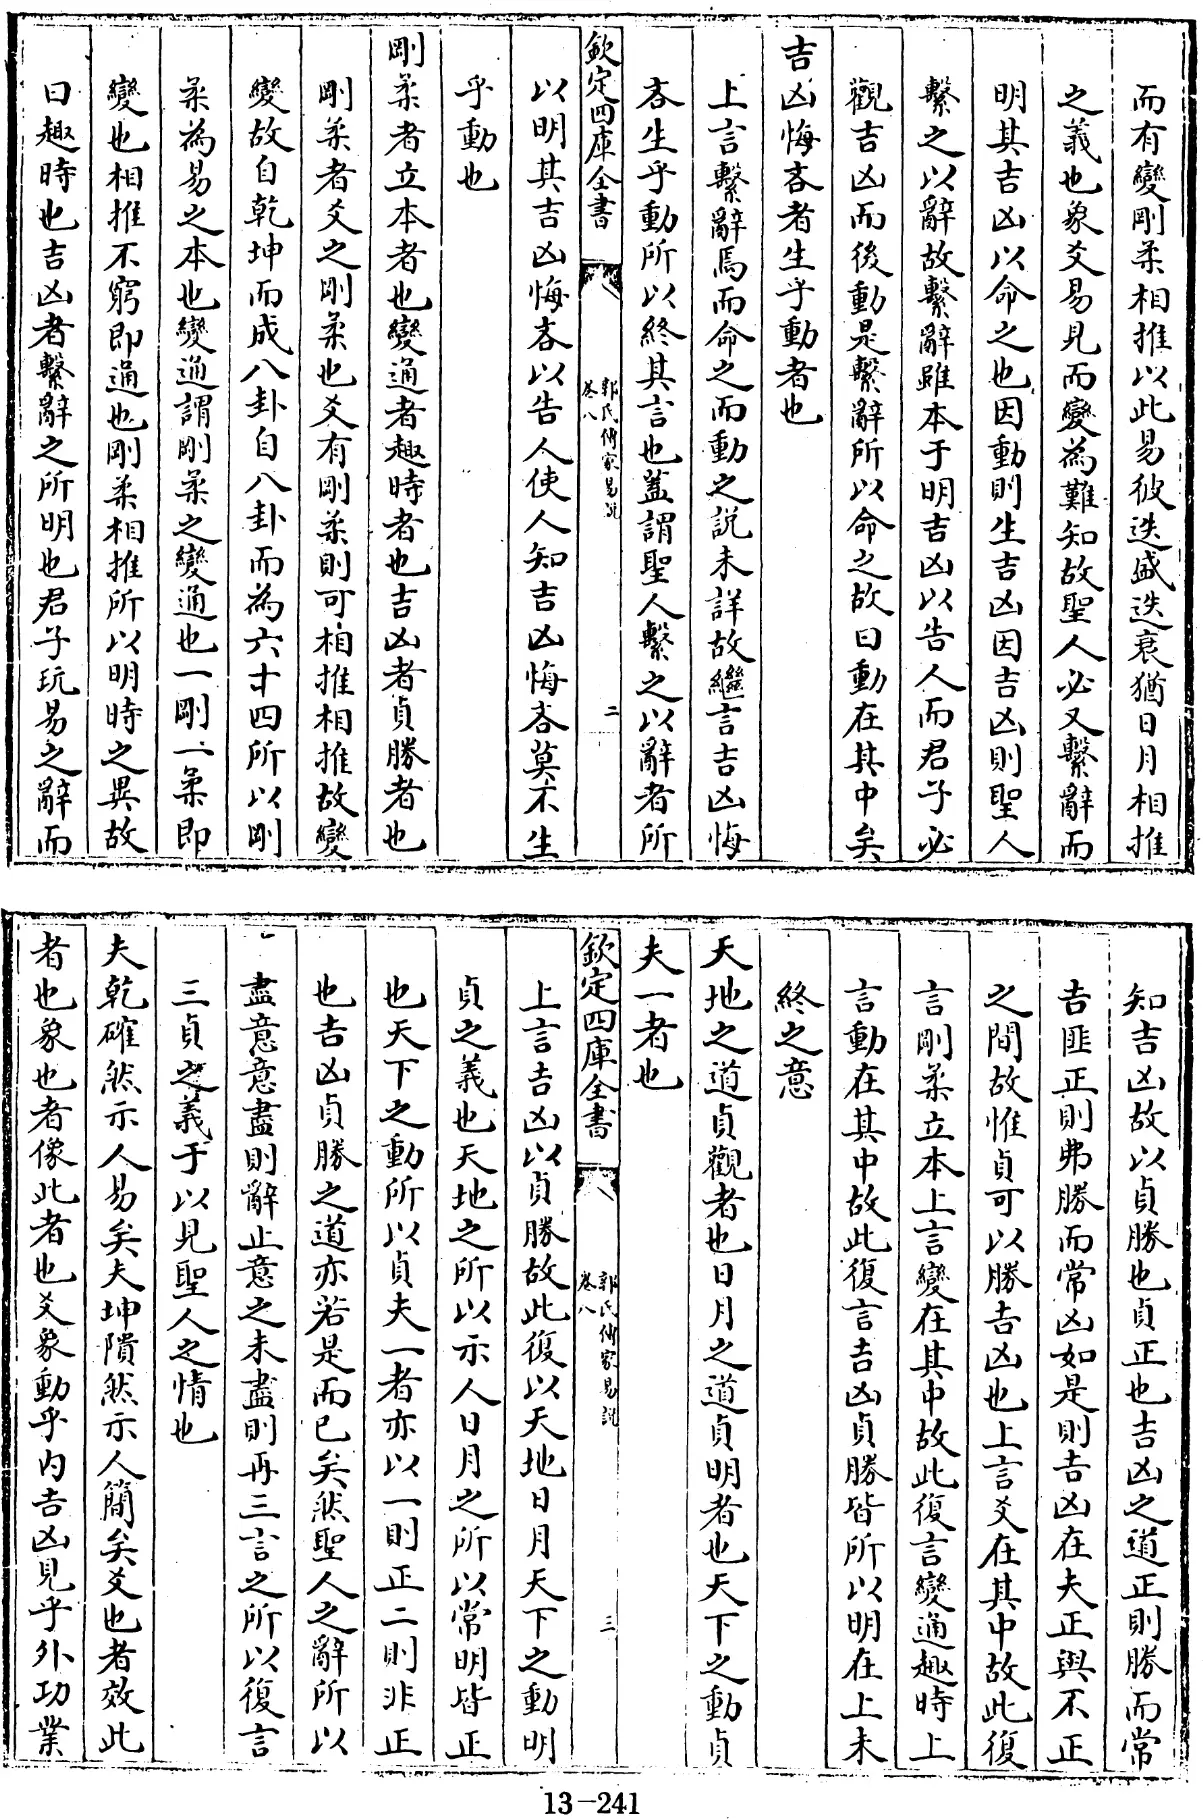 而有變剛柔相推以此易彼迭盛迭衰猶日月相推
之義也象爻易見而變為難知故聖人必又繫辭而
明其吉凶以命之也因動則生吉凶因吉凶則聖人
繫之以辭故繫辭雖本于明吉凶以告人而君子必
觀吉凶而後動是繫辭所以命之故曰動在其中矣
吉凶悔吝者生乎動者也
上言繫辭焉而命之而動之說未詳故繼言吉凶悔
吝生乎動所以終其言也蓋謂聖人繫之以辭者所
欽定四庫全書
郭氏傳家易說
卷八
二
以明其吉凶悔吝以告人使人知吉凶悔吝莫不生
乎動也
剛柔者立本者也變通者趣時者也吉凶者貞勝者也
剛柔者爻之剛柔也爻有剛柔則可相推相推故變
變故自乾坤而成八卦自八卦而為六十四所以剛
柔為易之本也變通謂剛柔之變通也一剛一柔即
變也相推不窮即通也剛柔相推所以明時之異故
曰趣時也吉凶者繫辭之所明也君子玩易之辭而
知吉凶故以貞勝也貞正也吉凶之道正則勝而常
吉匪正則弗勝而常凶如是則吉凶在夫正與不正
之間故惟貞可以勝吉凶也上言爻在其中故此復
言剛柔立本上言變在其中故此復言變通趣時上
言動在其中故此復言吉凶貞勝皆所以明在上未
終之意
天地之道貞觀者也日月之道貞明者也天下之動貞
夫一者也
欽定四庫全書
郭氏傳家易說
卷八
三
上言吉凶以貞勝故此復以天地日月天下之動明
貞之義也天地之所以示人日月之所以常明皆正
也天下之動所以貞夫一者亦以一則正二則非正
也吉凶貞勝之道亦若是而已矣然聖人之辭所以
盡意意盡則辭止意之未盡則再三言之所以復言
三貞之義于以見聖人之情也
夫乾確然示人易矣夫坤隤然示人簡矣爻也者效此
者也象也者像此者也爻象動乎內吉凶見乎外功業
13-241